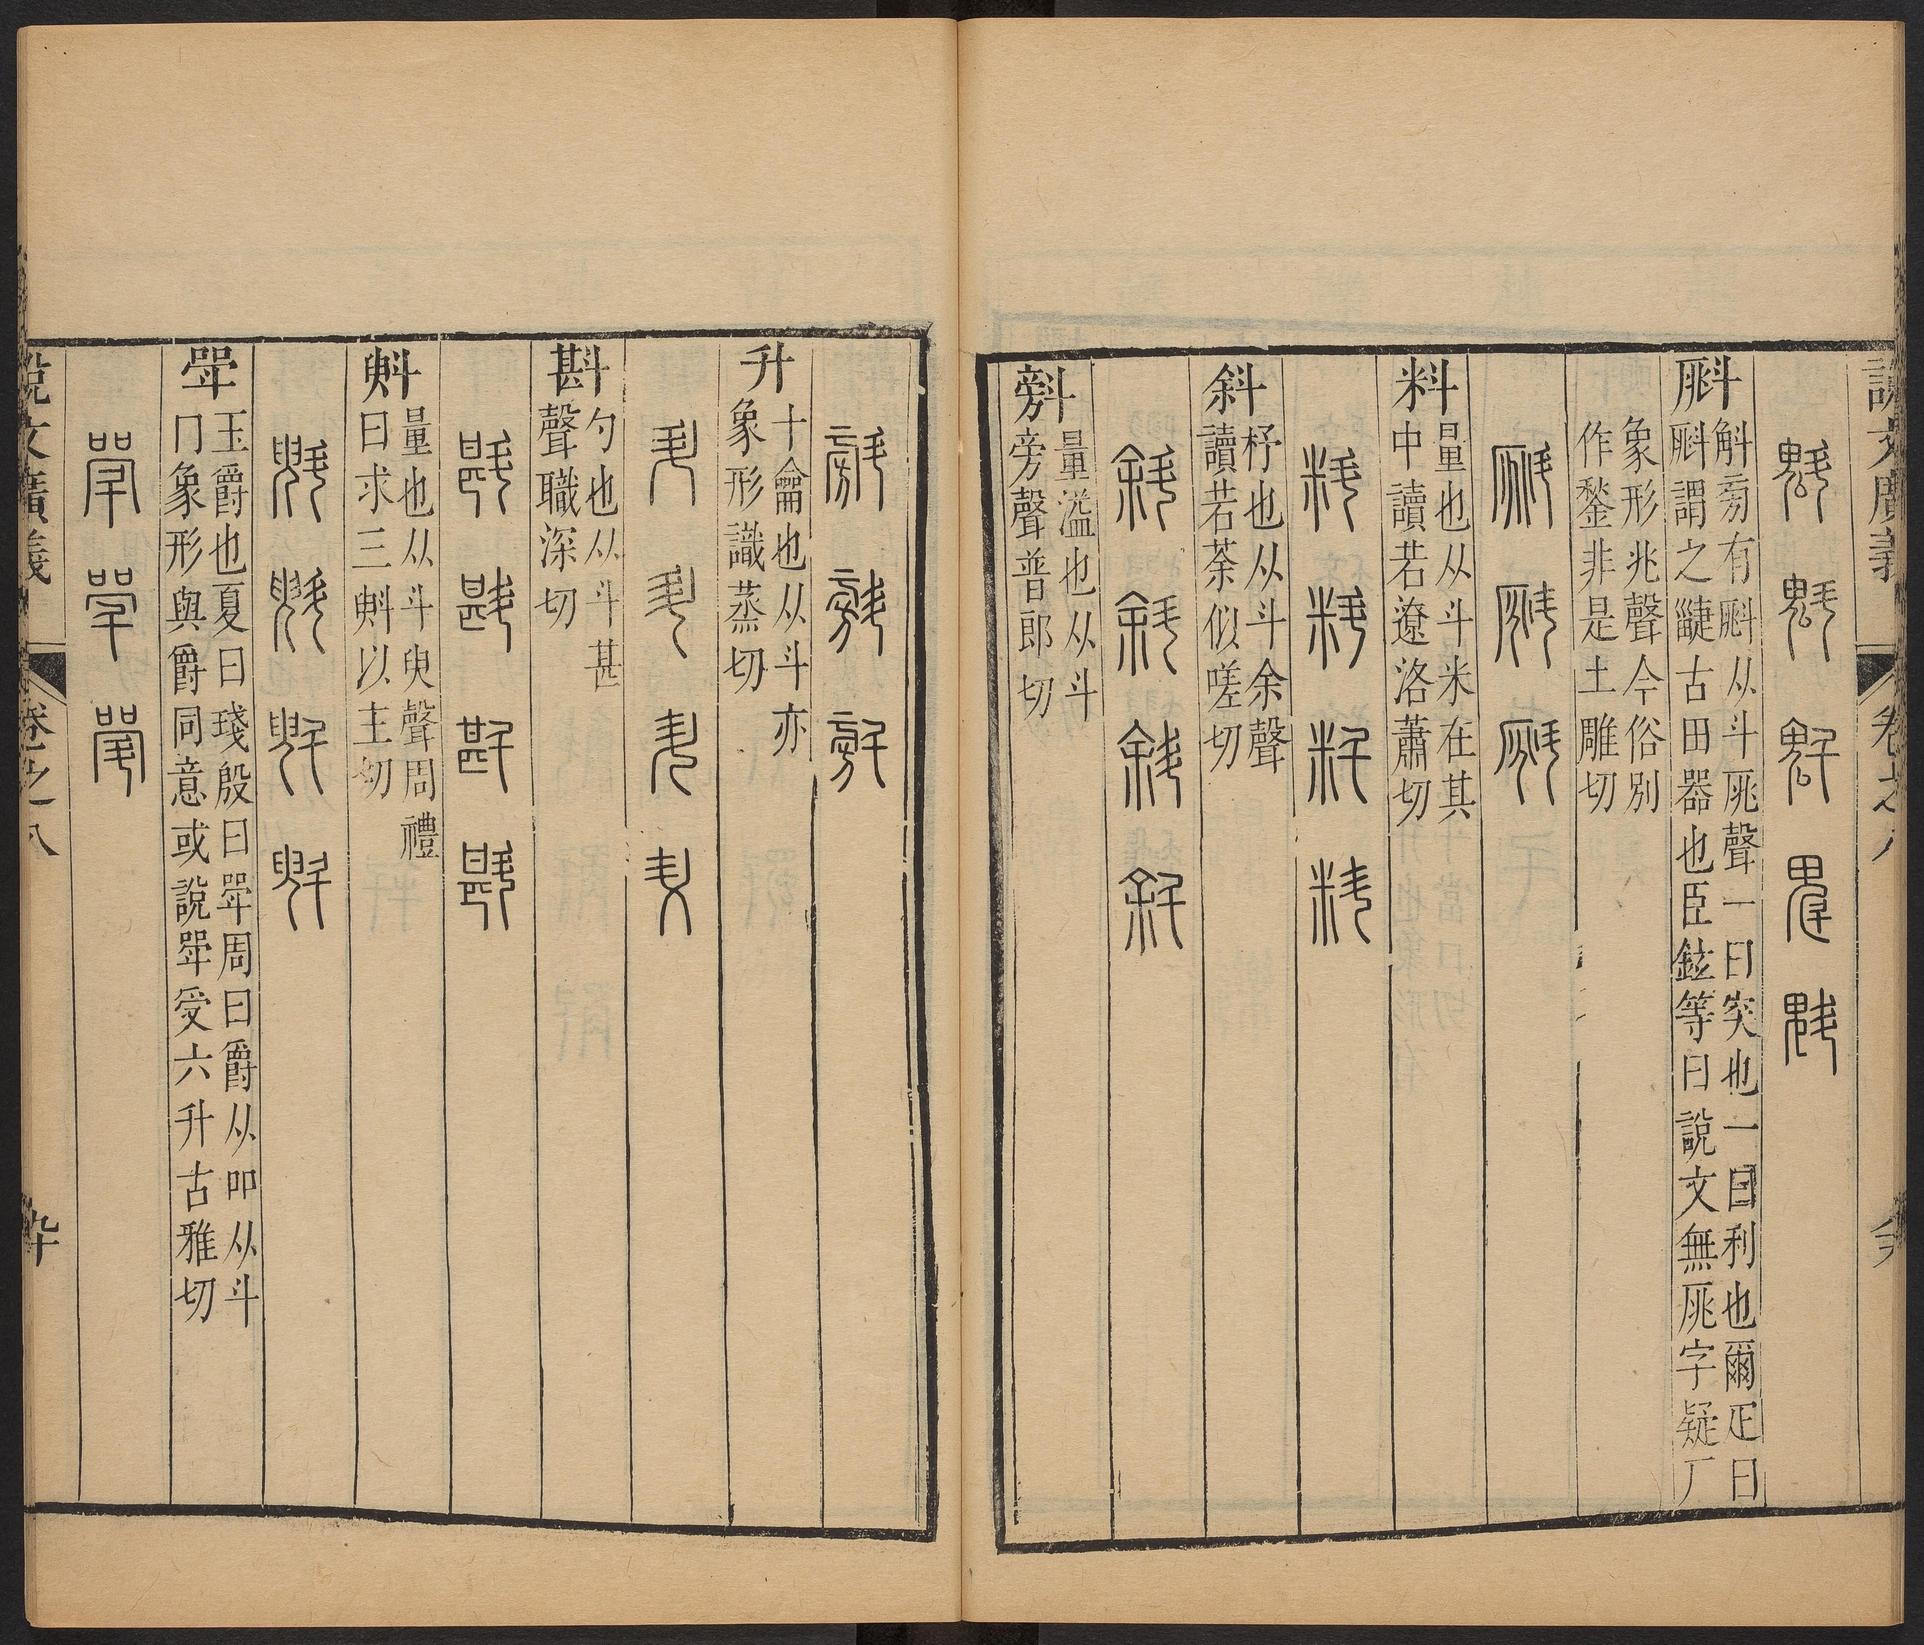 說文廣義
卷之八
斛
斛旁有斛从斗𠩓聲一曰突也一曰利也爾疋曰
斛謂之疀古田器也臣鉉等曰說文無𠩓字疑厂
象形兆聲今俗別
作鍫非是土雕切
料
量也从斗米在其
中讀若遼洛蕭切
斜
杼也从斗余聲
讀若荼似嗟切
㪵
量溢也从斗
旁聲普郎切
升
十龠也从斗亦
象形識蒸切
斟
勺也从斗甚
聲職深切
㪷
量也从斗臾聲周禮
曰求三㪷以主切
斝
玉爵也夏曰琖殷曰斝周曰爵从吅从斗
冂象形與爵同意或說斝受六升古雅切
說文廣義
卷之八